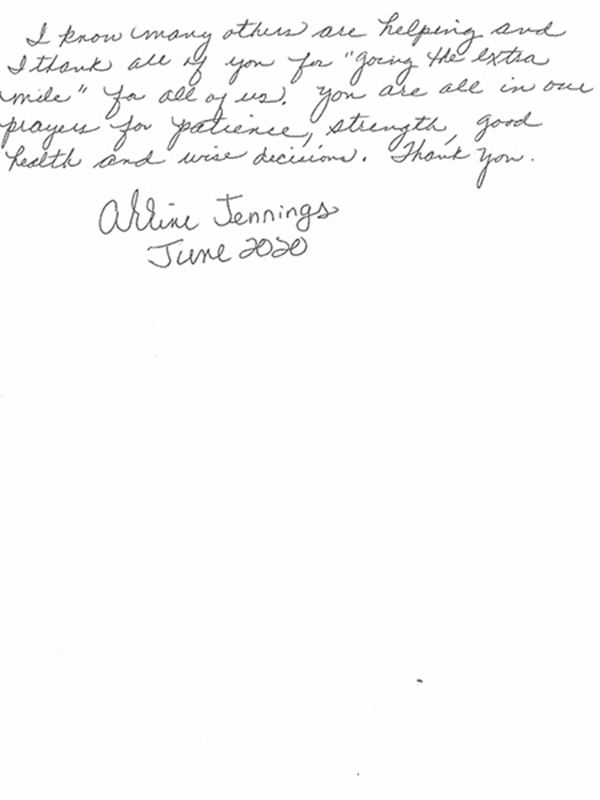 I know many others are helping and
I thank all of you for "going the extra
mile" for all of us. You are all in our
prayers for patience, strength, good
health and wise decisions. Thank You.
Arline Jennings
June 2020